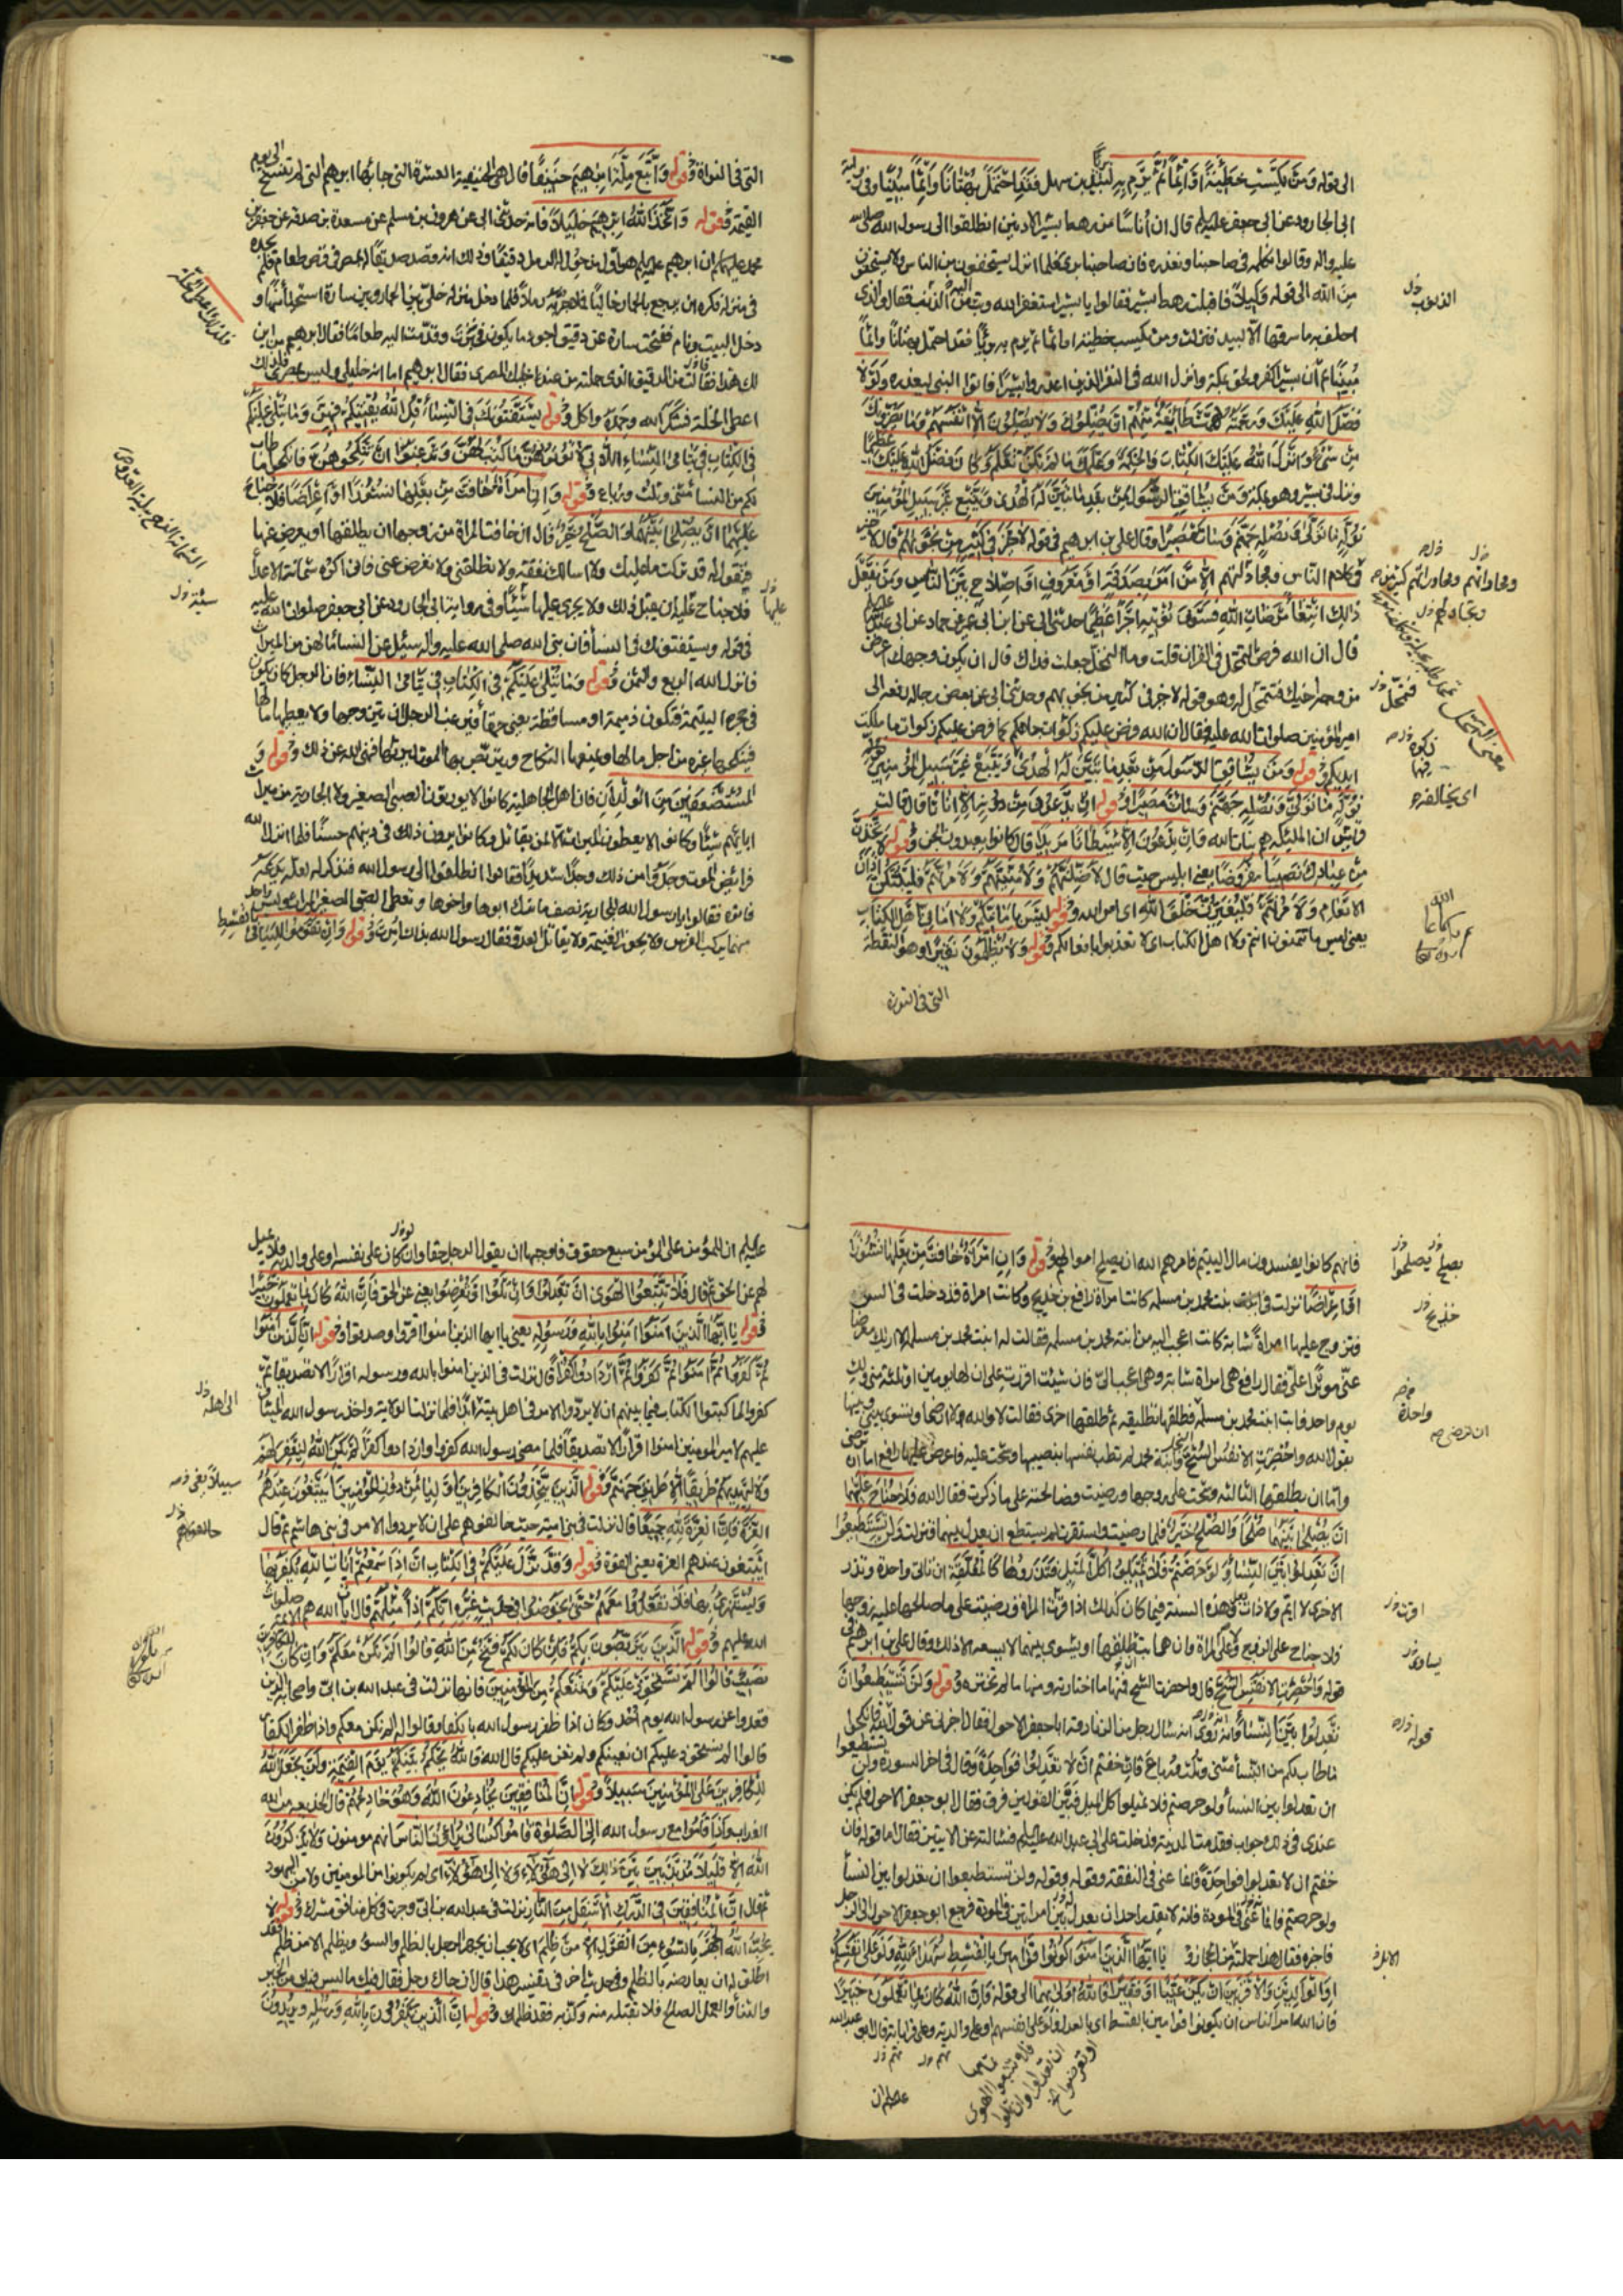 الى قوله ومن يكسب خطيئة او اثما ثم يرم به بريئا لبيد بن سهل فقد احتمل بهتانا واثما مبينا وفى رواية
ابى الجارود عن ابى جعفر عليه السلام قال ان اناسا من رهط بشير الادنين انطلقوا الى رسول الله صلى الله
عليه واله وقالوا نكلمه فى صاحبنا ونعذره فان صاحبنا برئ فلما انزل يستخفون من الناس ولا يستخفون
من الله الى قوله وكيلا فاقبلت رهط بشير فقالوا يا بشير استغفر الله وتب من الذنب فقال والذى
احلف به ما سرقها الا لبيد فنزلت ومن يكسب خطيئة او اثما ثم يرم به بريئا فقد احتمل بهتانا واثما
مبينا ثم ان بشيرا كفر ولحق بمكة وانزل الله فى النفر الذين اعذروا بشيرا فاتوا النبى ليعذره ولولا
فضل الله عليك ورحمته لهمت طائفة منهم ان يضلوك ولا يضلون الا انفسهم وما يضرونك
من شئ وانزل الله عليك الكتاب والحكمة وعلمك ما لم تكن تعلم وكان فضل الله عليك عظيما
ونزل فى بشير وهو بمكة ومن يشاقق الرسول من بعد ما تبين له الهدى ويتبع غير سبيل المؤمنين
نوله ما تولى ونصله جهنم وساءت مصيرا وقال على بن ابرهيم فى قوله لا خير فى كثير من نجواهم قال لا خير
فى كلام الناس ومحاوراتهم الا من امر بصدقة او معروف او اصلاح بين الناس ومن يفعل
ذلك ابتغاء مرضات الله فسوف نؤتيه اجرا عظيما حدثنى ابى عن ابن ابى عمير عن حماد عن ابى عبد الله عليه السلام
قال ان الله فرض التمحل فى القران قلت وما التمحل جعلت فداك قال ان يكون وجهك اعرض
من وجه اخيك فتمحل له وهو قوله لا خير فى كثير من نجواهم وحدثنى ابى عن بعض رجاله رفعه الى
امير المؤمنين صلوات الله عليه فقال ان الله فرض عليكم زكوات جاهكم كما فرض عليكم زكوات ما ملكت
ايديكم وقوله ومن يشاقق الرسول من بعد ما تبين له الهدى ويتبع غير سبيل المؤمنين
نوله ما تولى ونصله جهنم وساءت مصيرا وقوله ان يدعون من دونه الا اناثا قال قالت
قريش ان الملئكة هم بنات الله وان يدعون الا شيطانا مريدا قال كانوا يعبدون الجن وقوله لاتخذن
من عبادك نصيبا مفروضا يعنى ابليس حيث قال لاضلنهم ولامنينهم ولامرنهم فليبتكن اذان
الانعام ولامرنهم فليغيرن خلق الله اى امر الله وقوله ليس بامانيكم ولا امانى اهل الكتاب
يعنى ليس ما تتمنون انتم ولا اهل الكتاب اى لا تعذبوا بافعالكم وقوله ولا يظلمون نقيرا وهو النقطة
التى فى النواة
التى فى النواة وقوله واتبع ملة ابرهيم حنيفا قال هى الحنيفية العشرة التى جاء بها ابرهيم التى لم تنسخ الى يوم
القيمة وقوله واتخذ الله ابرهيم خليلا فانه حدثنى ابى عن هرون بن مسلم عن مسعدة بن صدقة عن جعفر بن
محمد عليهما السلام ان ابرهيم عليه السلام هو اول من حول له الرمل دقيقا وذلك انه قصد صديقا له بمصر فى قرض طعام فلم يجده
فى منزله فكره ان يرجع بالحمار خاليا فملا جرابه رملا فلما دخل منزله خلى بين الحمار وبين سارة استحياء منها و
دخل البيت ونام ففتحت سارة عن دقيق اجود ما يكون فخبزت وقدمت اليه طعاما فقال ابرهيم من اين
لك هذا فقالت من الدقيق الذى حملته من عند خليلك المصرى فقال ابرهيم اما انه خليلى وليس بمصرى فلذلك
اعطى الخلة فشكر لله وحمده واكل وقوله يستفتونك فى النساء قل الله يفتيكم فيهن وما يتلى عليكم
فى الكتاب فى يتامى النساء اللاتى لا تؤتونهن ما كتب لهن وترغبون ان تنكحوهن فانكحوا ما طاب
لكم من النساء مثنى وثلث ورباع وقوله وان امراة خافت من بعلها نشوزا او اعراضا فلا جناح
عليهما ان يصلحا بينهما والصلح خير قال ان خافت المراة من زوجها ان يطلقها او يعرض عنها
فتقول له قد تركت ما عليك ولا اسالك نفقة ولا تطلقنى ولا تعرض عنى فانى اكره شماتة الاعداء
فلا جناح عليه ان يقبل ذلك ولا يجرى عليها شيئا وفى رواية ابى الجارود عن ابى جعفر صلوات الله عليه
فى قوله ويستفتونك فى النساء فان نبى الله صلى الله عليه واله سئل عن النساء ما لهن من الميراث
فانزل الله الربع والثمن وقوله وما يتلى عليكم فى الكتاب فى يتامى النساء فان الرجل كان يكون
فى حجره اليتيمة فتكون ذميمة او مساقطة يعنى حمقاء فيرغب الرجل ان يتزوجها ولا يعطيها مالها
فينكحها غيره من اجل مالها ويمنعها النكاح ويتربص بها الموت ليرثها فنهى الله عن ذلك وقوله و
المستضعفين من الولدان فان اهل الجاهلية كانوا لا يورثون الصبى الصغير ولا الجارية من ميراث
ابائهم شيئا وكانوا لا يعطون الميراث الا لمن يقاتل وكانوا يرون ذلك فى دينهم حسنا فلما انزل الله
فرائض الموت وجدوا من ذلك وجدا شديدا فقالوا انطلقوا الى رسول الله فنذكر له لعله يدعه
فاتوه فقالوا يا رسول الله للجارية نصف ما ترك ابوها واخوها ويعطى الصبى الصغير الميراث وليس احد
منهما يركب الفرس ولا يحوز الغنيمة ولا يقاتل العدو فقال رسول الله بذلك امرت وقوله وان تقوموا لليتامى بالقسط
فانهم كانوا يفسدون مال اليتيم فامرهم الله ان يصلح اموالهم وقوله وان امراة خافت من بعلها نشوزا
او اعراضا نزلت فى بنت محمد بن مسلمه كانت امراة رافع بن خديج وكانت امراة قد دخلت فى السن
فتزوج عليها امراة شابة كانت اعجب اليه من ابنة محمد بن مسلمه فقالت له ابنت محمد بن مسلمه الا اريك معرضا
عنى موثرا على فقال رافع هى امراة شابة وهى اعجب الى فان شئت اقررت على ان لها يومين او ثلثة منى ولك
يوم واحد فابت ابنت محمد بن مسلمه فطلقها تطليقة ثم طلقها اخرى فقالت لا والله ولا ارضى او تسوى بينى وبينها
يقول الله واحضرت الانفس الشح وابنة محمد لم تطب نفسها بنصيبها وشحت عليه فاعرض عليها رافع اما ان ترضى
واما ان يطلقها الثالثة فشحت على زوجها ورضيت فصالحته على ما ذكرت فقال الله فلا جناح عليهما
ان يصلحا بينهما صلحا والصلح خير فلما رضيت واستقرت لم يستطع ان يعدل بينهما فنزلت ولن تستطيعوا
ان تعدلوا بين النساء ولو حرصتم فلا تميلوا كل الميل فتذروها كالمعلقة ان تاتى واحدة وتذر
الاخرى لا ايم ولا ذات بعل وهذه السنة فيما كان كذلك اذا اقرت المراة ورضيت على ما صالحها عليه زوجها
فلا جناح على الزوج ولا على المراة وان هى ابت طلقها او يسوى بينهما لا يسعه الا ذلك وقال على بن ابرهيم فى
قوله واحضرت الانفس الشح قال واحضرت الشح فمنها ما اختارته ومنها ما لم تختره وقوله ولن تستطيعوا ان
تعدلوا بين النساء انه روى انه سال رجل من الزنادقة ابا جعفر الاحول فقال اخبرنى عن قول الله فانكحوا
ما طاب لكم من النساء مثنى وثلث ورباع فان خفتم ان لا تعدلوا فواحدة وقال فى اخر السورة ولن تستطيعوا
ان تعدلوا بين النساء ولو حرصتم فلا تميلوا كل الميل فبين القولين فرق فقال ابو جعفر الاحول فلم يكن
عندى فى ذلك جواب فقدمت المدينة فدخلت على ابى عبد الله عليه السلام فسالته عن الايتين فقال اما قوله فان
خفتم ان لا تعدلوا فواحدة فانما عنى فى النفقة وقوله ولن تستطيعوا ان تعدلوا بين النساء
ولو حرصتم فانما عنى فى المودة فانه لا يقدر احد ان يعدل بين امراتين فى المودة فرجع ابو جعفر الاحول الى الرجل
فاخبره فقال هذا حملته من الحجاز يا ايها الذين امنوا كونوا قوامين بالقسط شهداء لله ولو على انفسكم
او الوالدين والاقربين ان يكن غنيا او فقيرا فالله اولى بهما الى قوله فان الله كان بما تعملون خبيرا
فان الله امر الناس ان يكونوا قوامين بالقسط اى بالعدل ولو على انفسهم او على والديه او على قراباته قال ابو عبد الله
عليه السلام ان
عليه السلام ان للمؤمن على المؤمن سبع حقوق فاوجبها ان يقول الرجل حقا وان كان على نفسه او على والديه فلا يميل
لهم عن الحق ثم قال فلا تتبعوا الهوى ان تعدلوا وان تلوا او تعرضوا يعنى عن الحق فان الله كان بما تعملون خبيرا
وقوله يا ايها الذين امنوا امنوا بالله ورسوله يعنى يا ايها الذين امنوا اقروا وصدقوا وقوله ان الذين امنوا
ثم كفروا ثم امنوا ثم كفروا ثم ازدادوا كفرا قال نزلت فى الذين امنوا بالله ورسوله اقرارا لا تصديقا ثم
كفروا لما كتبوا الكتاب فيما بينهم ان لا يردوا الامر فى اهل بيته ابدا فلما نزلت الولاية واخذ رسول الله الميثاق
عليهم لامير المومنين امنوا اقرارا لا تصديقا فلما مضى رسول الله كفروا وازدادوا كفرا لم يكن الله ليغفر لهم
ولا ليهديهم طريقا الا طريق جهنم وقوله الذين يتخذون الكافرين اولياء من دون المؤمنين ايبتغون عندهم
العزة فان العزة لله جميعا قال نزلت فى بنى امية حيث حالفوهم على ان لا يردوا الامر فى بنى هاشم ثم قال
ايبتغون عندهم العزة يعنى القوة وقوله وقد نزل عليكم فى الكتاب ان اذا سمعتم ايات الله يكفر بها
ويستهزئ بها فلا تقعدوا معهم حتى يخوضوا فى حديث غيره انكم اذا مثلهم قال ايات الله هم الائمة صلوات
الله عليهم وقوله الذين يتربصون بكم فان كان لكم فتح من الله قالوا الم نكن معكم وان كان للكافرين
نصيب قالوا الم نستحوذ عليكم ونمنعكم من المؤمنين فانها نزلت فى عبد الله بن ابى واصحابه الذين
قعدوا عن رسول الله يوم احد وكان اذا ظفر رسول الله بالكفار قالوا له الم نكن معكم واذا ظفر الكفار
قالوا الم نستحوذ عليكم ان نعينكم ولم نعن عليكم قال الله فالله يحكم بينكم يوم القيمة ولن يجعل الله
للكافرين على المؤمنين سبيلا وقوله ان المنافقين يخادعون الله وهو خادعهم قال الخديعة من الله
العذاب واذا قاموا مع رسول الله الى الصلوة قاموا كسالى يراؤن الناس انهم مومنون ولا يذكرون
الله الا قليلا مذبذبين بين ذلك لا الى هؤلاء ولا الى هؤلاء اى لم يكونوا من المومنين ولا من اليهود
ثم قال ان المنافقين فى الدرك الاسفل من النار نزلت فى عبد الله بن ابى وجرت فى كل منافق مشرك وقوله لا
يحب الله الجهر بالسوء من القول الا من ظلم اى لا يحب ان يجهر الرجل بالظلم والسوء ويظلم الا من ظلم فقد
اطلق له ان يعارضه بالظلم وفى حديث اخر فى تفسير هذا قال ان جاءك رجل فقال فيك ما ليس فيك من الخير
والثناء والعمل الصالح فلا تقبله منه وكذبه فقد ظلمك وقوله ان الذين يكفرون بالله ورسله ويريدون